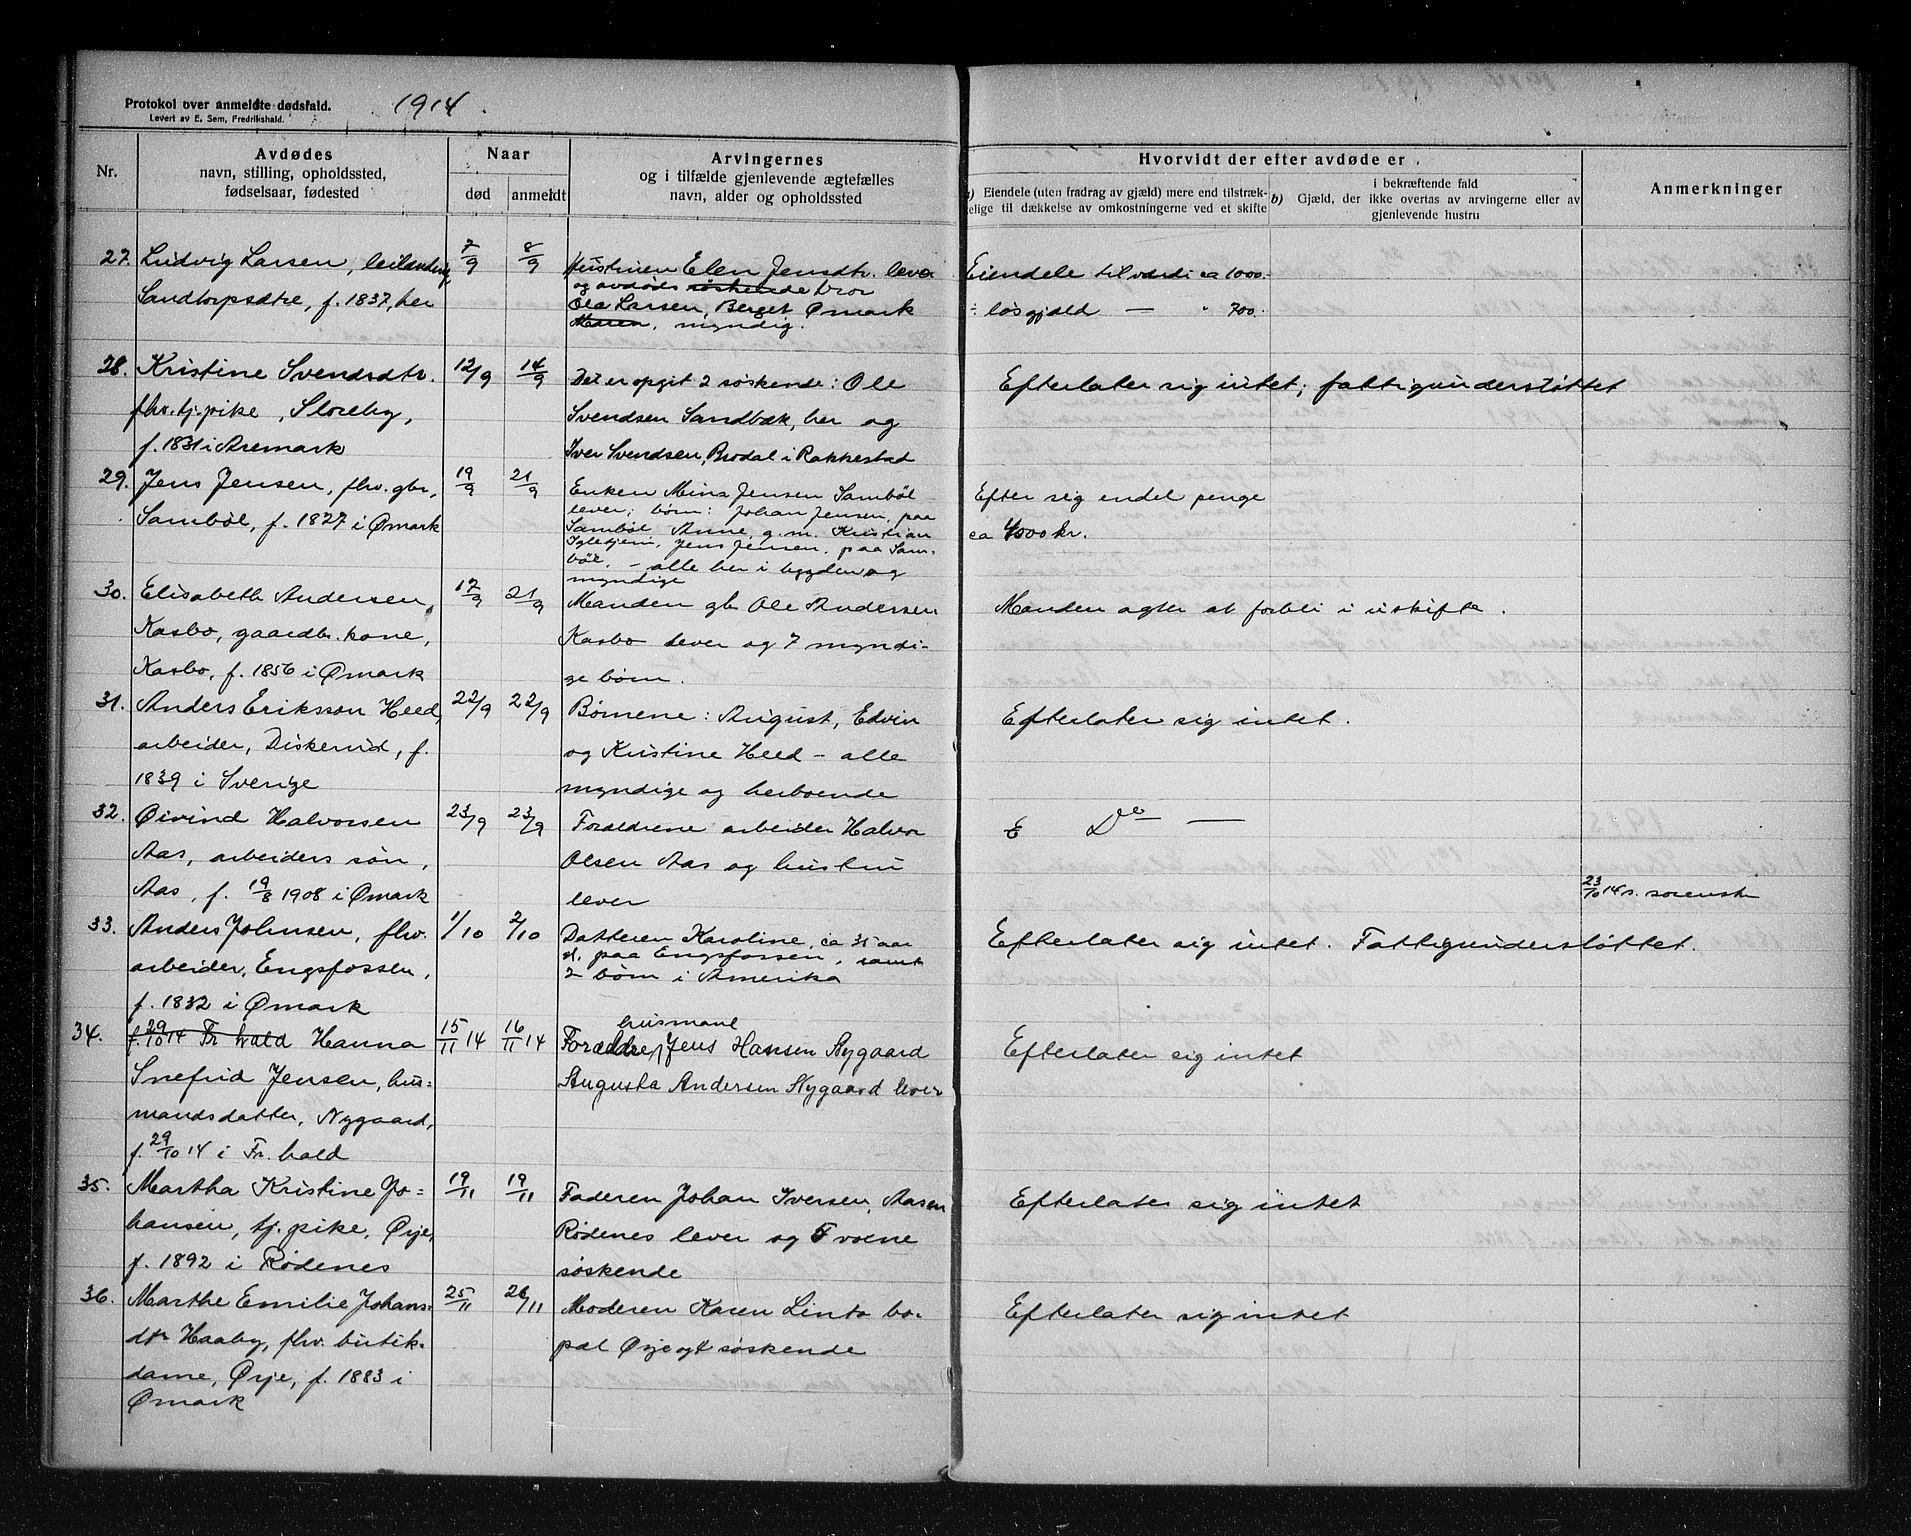 Protokol over anmeldte dødsfald. 1914.
Levert av E. Sem, Fredrikshald.
Nr.
Avdødes
navn, stilling, opholdssted,
fødselsaar, fødested
Naar
død
anmeldt
Arvingernes
og i tilfælde gjenlevende ægtefælles
navn, alder og opholdssted
Hvorvidt der efter avdøde er
a) Eiendele (uten fradrag av gjæld) mere end tilstræk-
kelige til dækkelse av omkostningerne ved et skifte
i bekræftende fald
b) Gjæld, der ikke overtas av arvingerne eller av
gjenlevende hustru
Anmerkninger
27. Ludvig Larsen, leilending
Sandtorpsdtre, f. 1837, her
7/9
8/9
Hustruen Elen Jensdtr. lever
og avdødes søskende bror
Ole Larsen, Berget Ømark
Maren, myndig.
Eiendele til værdi ca 1000.-
÷ løsgjæld — " 700.-
28. Kristine Svendsdtr.
fhv. tj. pike, Sloreby,
f. 1831 i Aremark
12/9
14/9
Det er opgit 2 søskende: Ole
Svendsen Sandbæk, her og
Iver Svendsen, Brodal i Rakkestad
Efterlater sig intet; fattigunderstøttet
29. Jens Jensen, fhv. gbr.,
Sambøl, f. 1827 i Ømark
19/9
21/9
Enken Mina Jensen Sambøl
lever; børn: Johan Jensen, paa
Sambøl, Anne, g. m. Kristian
Igletjern, Jens Jensen, paa Sam-
bøl. – alle her i bygden og
myndige
Efter sig endel penge
ca 4000 kr.
30. Elisabeth Andersen,
Kasbo, gaardbr. kone,
Kasbo, f. 1856 i Ømark
17/9
21/9
Manden gbr Ole Andersen
Kasbo lever og 7 myndi-
ge børn.
Manden agter at forbli i uskifte.
31. Anders Eriksson Heed,
arbeider, Diskerud, f.
1839 i Sverige
22/9
22/9
Børnene: August, Edvin
og Kristine Heed – alle
myndige og herboende
Efterlater sig intet.
32. Øivind Halvorsen
Aas, arbeiders søn,
Aas, f. 19/8 1908 i Ømark
23/9
23/9
Forældrene arbeider Halvor
Olsen Aas og hustru
lever
E Do —
23/10 14 s. sorensk
33. Anders Johnsen, fhv.
arbeider, Engsfossen,
f. 1832 i Ømark
1/10
2/10
Datteren Karoline, ca 35 aar
gl. paa Engsfossen, samt
2 børn i Amerika
Efterlater sig intet. Fattigunderstøttet.
34. f. 29/10 14 Fr. hald Hanna
Snefrid Jensen, hus=
mandsdatter, Nygaard,
f. 29/10 14 i Fr. hald
15/11 14
16/11 14
husmand
Forældre, Jens Hansen Nygaard
Augusta Andersen Nygaard lever
Efterlater sig intet
35. Martha Kristine Jo=
hansen, tj. pike, Ørje,
f. 1892 i Rødenes
19/11
19/11
Faderen Johan Iversen, Aasen
Rødenes lever og 5 voxne
søskende
Efterlater sig intet
36. Marthe Emilie Johans=
dtr Haaby, fhv. butik-
dame, Ørje, f. 1883 i
Ømark
25/11
26/11
Moderen Karen Linto bo-
pæl Ørje og 4 søskende
Efterlater sig intet